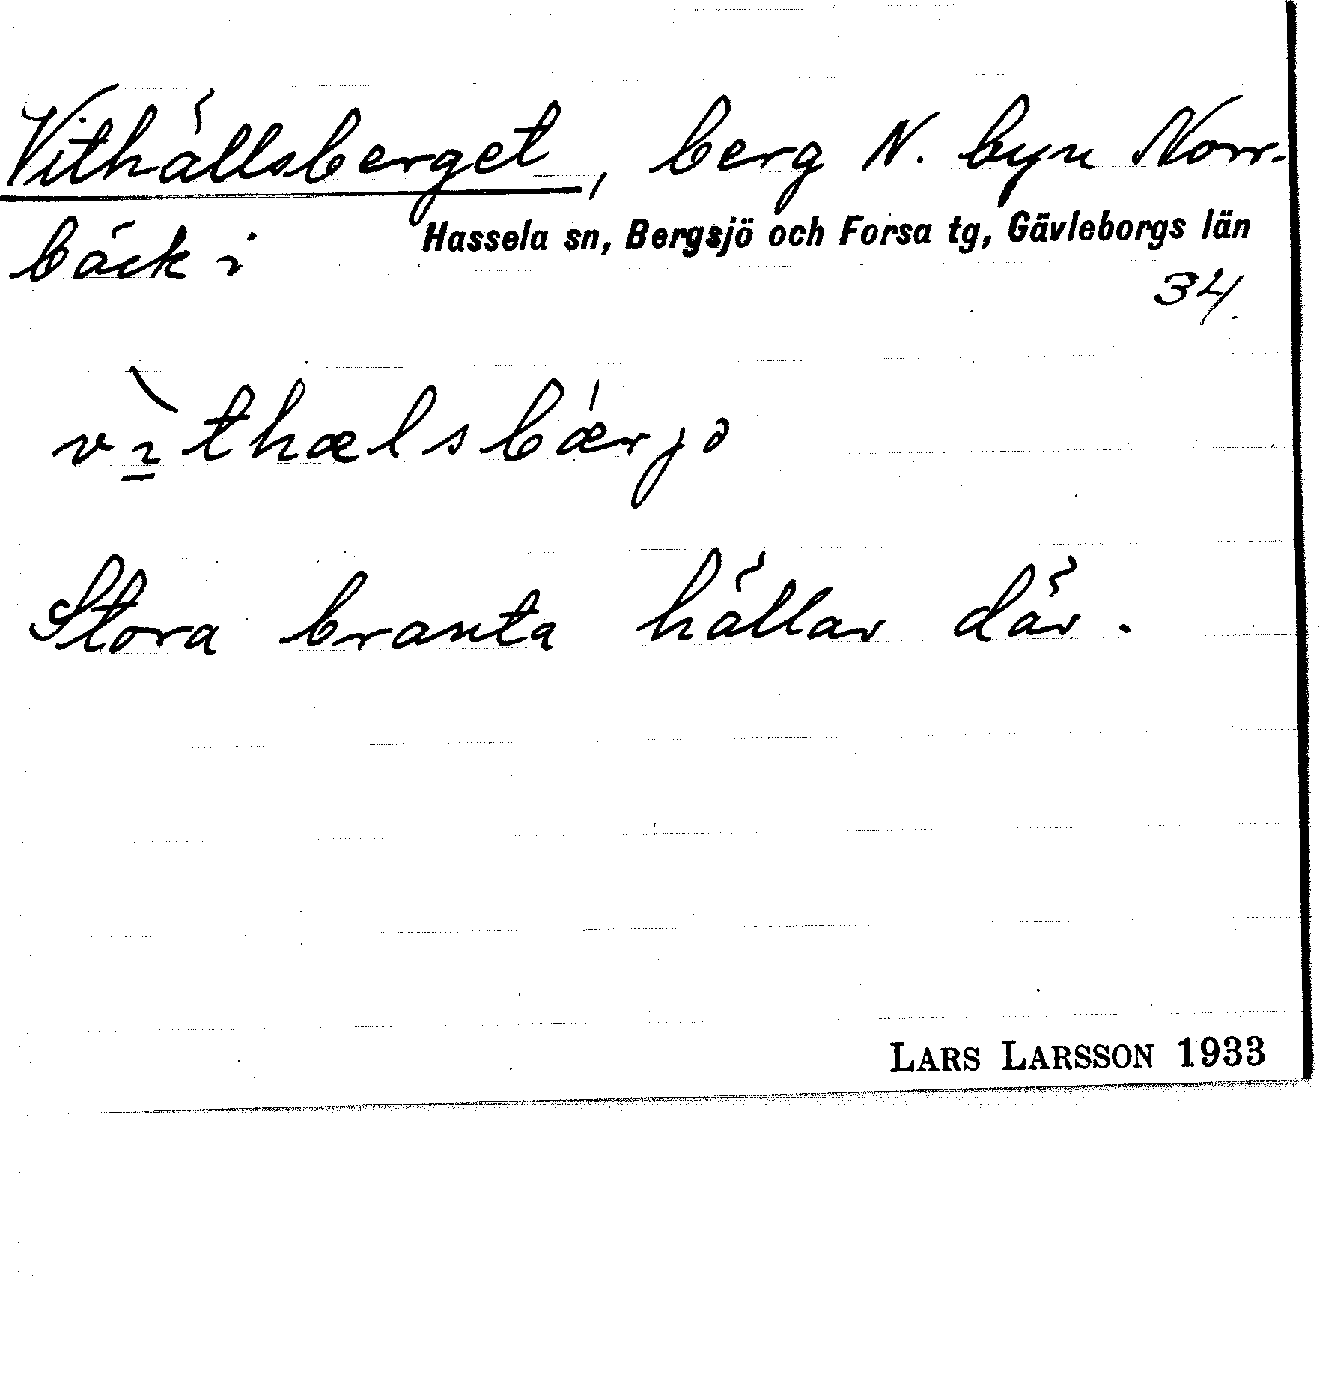 Vithällsberget, berg N. byn Norr-
bäck i Hassela sn, Bergsjö och Forsa tg, Gävleborgs län
34.
vı̀thælsbǽrjə
Stora branta hällar där.
LARS LARSSON 1933